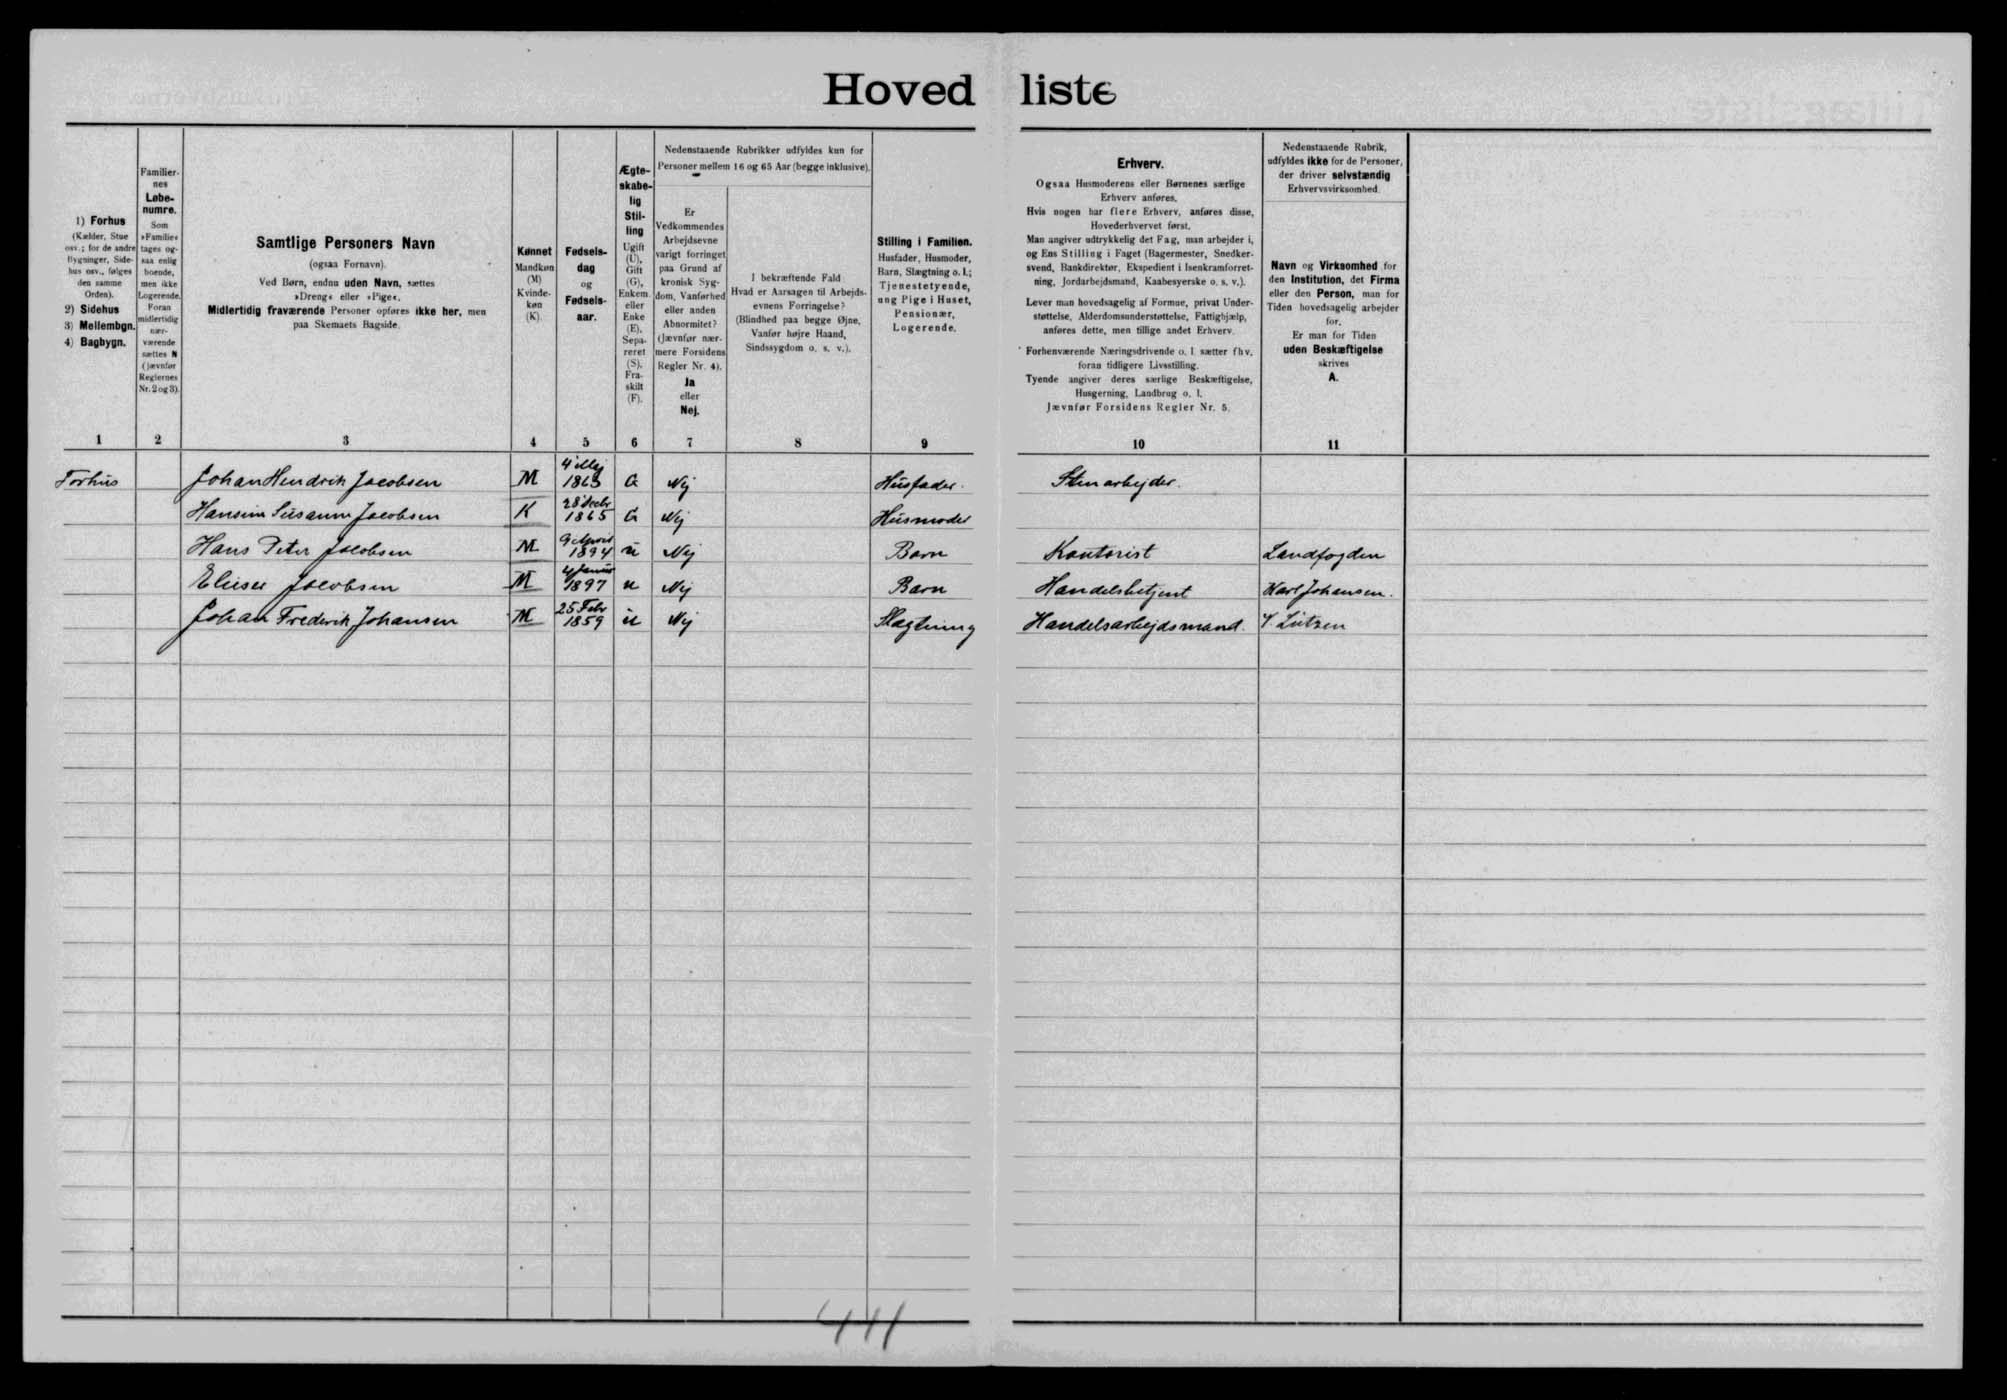 Hovedliste
1) Forhus
(Kælder, Stue
osv.; for de andre
Bygninger, Side-
hus osv., følges
den samme
Orden).
2) Sidehus
3) Mellembgn.
4) Bagbygn.
Familier-
nes
Løbe-
numre.
Som
»Familie«
tages og-
saa enlig
boende,
men ikke
Logerende.
Foran
midlertidig
nær-
værende
sættes N
(jævnfør
Reglernes
Nr. 2 og 3).
Samtlige Personers Navn
(ogsaa Fornavn).
Ved Børn, endnu uden Navn, sættes
»Dreng« eller »Pige«.
Midlertidig fraværende Personer opføres ikke her, men
paa Skemaets Bagside.
Kønnet
Mandkøn
(M)
Kvinde-
køn
(K).
Fødsels-
dag
og
Fødsels-
aar.
Ægte-
skabe-
lig
Stil-
ling
Ugift
(U),
Gift
(G),
Enkem.
eller
Enke
(E),
Sepa-
reret
(S),
Fra-
skilt
(F).
Nedenstaaende Rubrikker udfyldes kun for
Personer mellem 16 og 65 Aar (begge inklusive).
Er
Vedkommendes
Arbejdsevne
varigt forringet
paa Grund af
kronisk Syg-
dom, Vanførhed
eller anden
Abnormitet?
(Jævnfør nær-
mere Forsidens
Regler Nr. 4).
Ja
eller
Nej.
I bekræftende Fald:
Hvad er Aarsagen til Arbejds-
evnens Forringelse?
(Blindhed paa begge Øjne,
Vanfør højre Haand,
Sindssygdom o. s. v.).
Stilling i Familien.
Husfader, Husmoder,
Barn, Slægtning o. l.;
Tjenestetyende,
ung Pige i Huset,
Pensionær,
Logerende.
Erhverv.
Ogsaa Husmoderens eller Børnenes særlige
Erhverv anføres.
Hvis nogen har flere Erhverv, anføres disse,
Hovederhvervet først.
Man angiver udtrykkelig det Fag, man arbejder i,
og Ens Stilling i Faget (Bagermester, Snedker-
svend, Bankdirektør, Ekspedient i Isenkramforret-
ning, Jordarbejdsmand, Kaabesyerske o. s. v.).
Lever man hovedsagelig af Formue, privat Under-
støttelse, Alderdomsunderstøttelse, Fattighjælp,
anføres dette, men tillige andet Erhverv.
Forhenværende Næringsdrivende o. l. sætter fhv.
foran tidligere Livsstilling.
Tyende angiver deres særlige Beskæftigelse,
Husgerning, Landbrug o. l.
Jævnfør Forsidens Regler Nr. 5.
Nedenstaaende Rubrik,
udfyldes ikke for de Personer,
der driver selvstændig
Erhvervsvirksomhed.
Navn og Virksomhed for
den Institution, det Firma
eller den Person, man for
Tiden hovedsagelig arbejder
for.
Er man for Tiden
uden Beskæftigelse
skrives
A.
1 2 3 4 5 6 7 8 9 10 11
Forhus Johan Hendrik Jacobsen M 4 Maj 1863 G Nej Husfader. Stenarbejder.
Hansine Susanne Jacobsen K 28 Decbr 1865 G Nej Husmoder
Hans Peter Jacobsen M 9 April 1894 U Nej Barn Kontorist Landfogden
Elieser Jacobsen M 4 Januar 1897 U Nej Barn Handelsbetjent Karl Johansen.
Johan Frederik Johansen M 25 Febr 1859 U Nej Slægtning Handelsarbejdsmand. Lützen
441